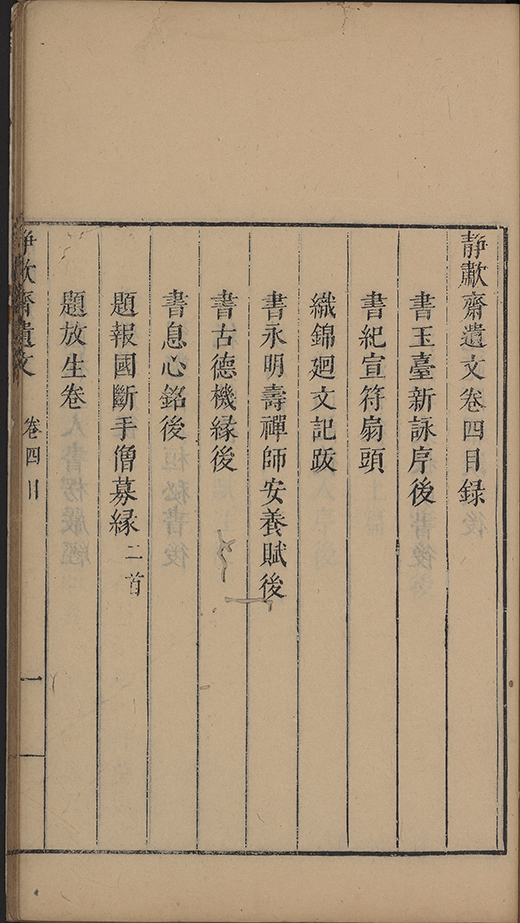 靜歗齋遺文卷四目録
書玉臺新詠序後
書紀宣符扇頭
織錦廻文記跋
書永明壽禪師安養賦後
書古德機緣後
書息心銘後
題報國斷手僧募緣二首
題放生卷
靜歗齋遺文
卷四目
一